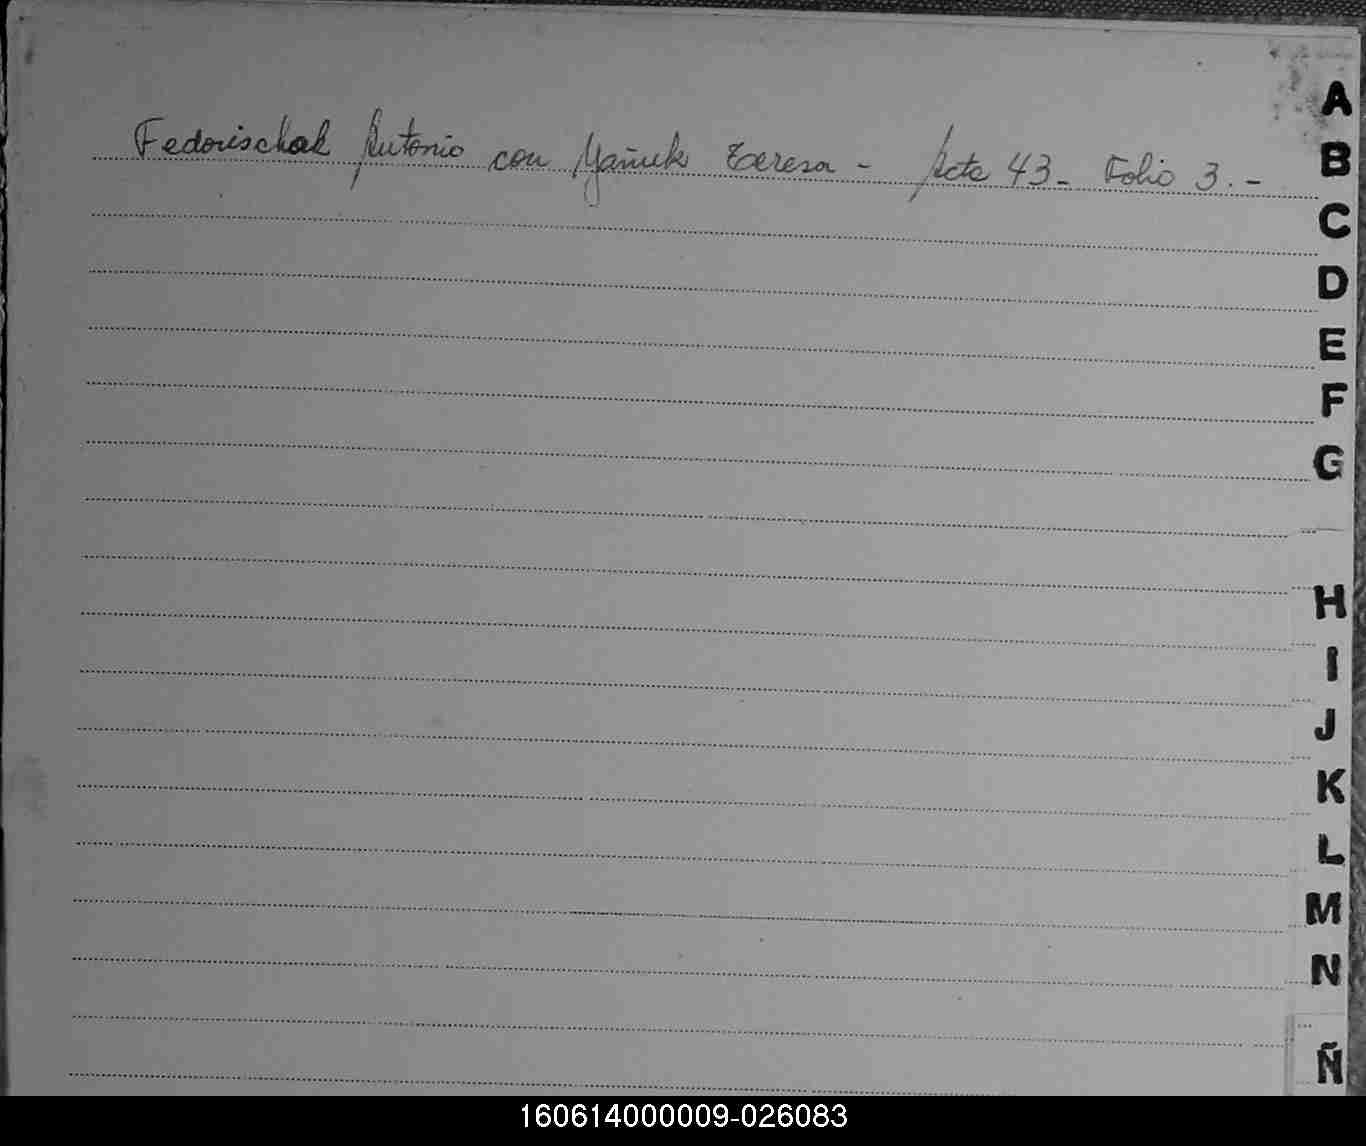 Fedorischak Antonio con Yañuk Teresa - Acta 43 - Folio 3. -
A
B
C
D
E
F
G
H
I
J
K
L
M
N
Ñ
160614000009-026083